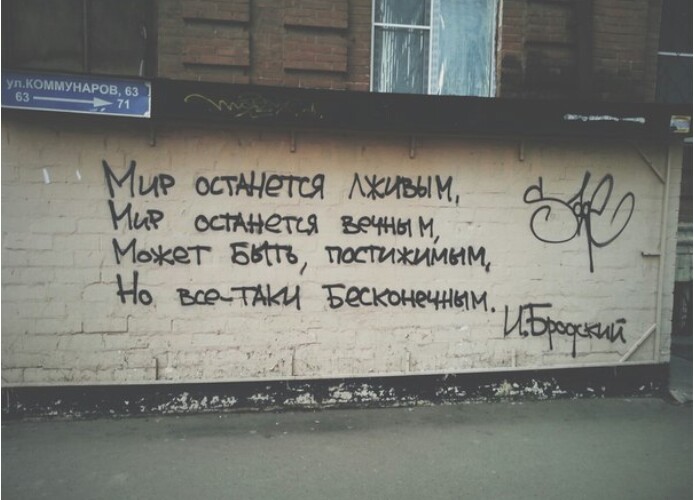 ул.КОММУНАРОВ, 63
63 71
Мир останется лживым,
Мир останется вечным,
Может быть, постижимым,
Но все-таки бесконечным.
И.Бродский